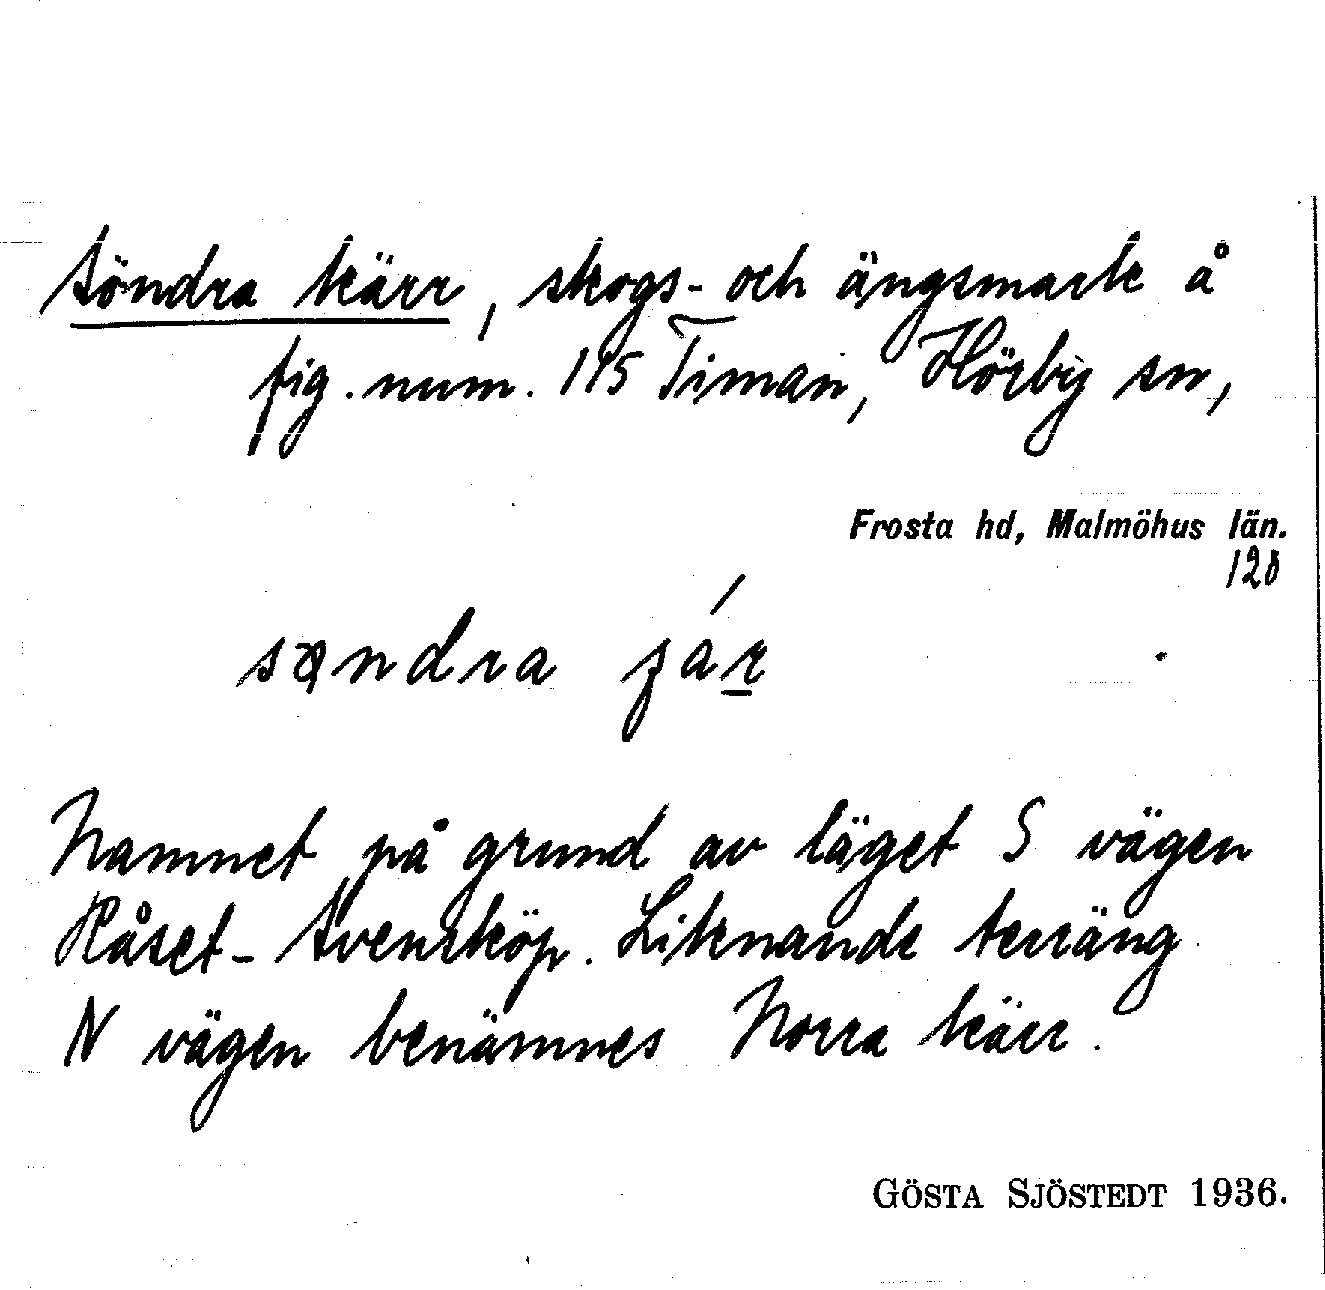 Söndra kärr, skogs- och ängsmark å
fig. num. 115 Timan, Hörby sn,
Frosta hd, Malmöhus län.
128
søndra jár
Namnet på grund av läget S vägen
Råset - Svensköp. Liknande terräng
N vägen benämnes Norra kärr.
GÖSTA SJÖSTEDT 1936.